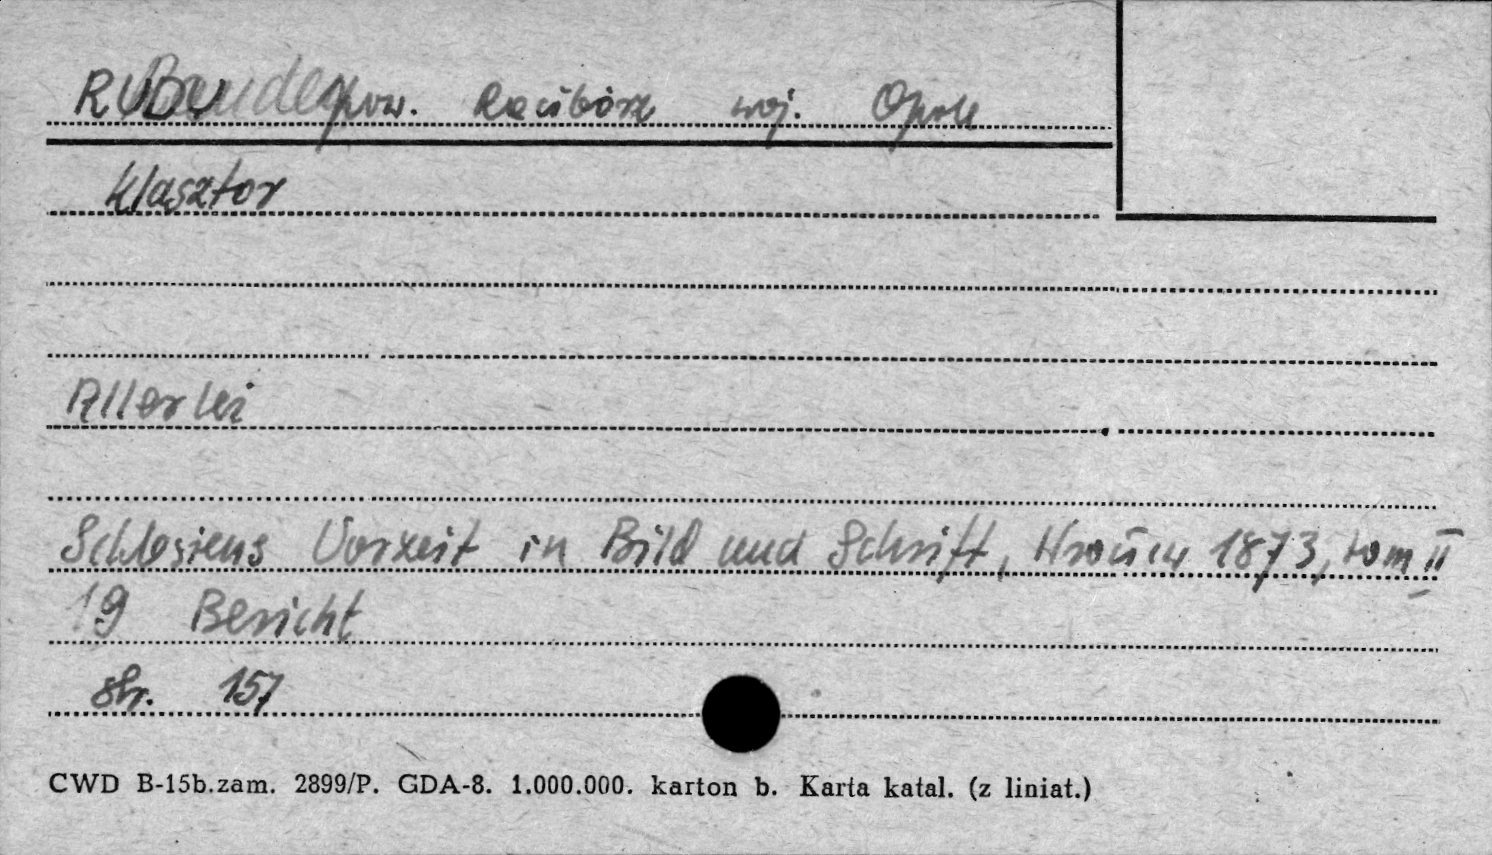 RUDY pow. Racibórz woj. Opole
Klasztor
Allerlei
Schlesiens Vorzeit in Bild und Schrift, Wrocław 1873, tom II
19 Bericht
str. 157
CWD B-15b.zam. 2899/P. GDA-8. 1.000.000. karton b. Karta katal. (z liniat.)